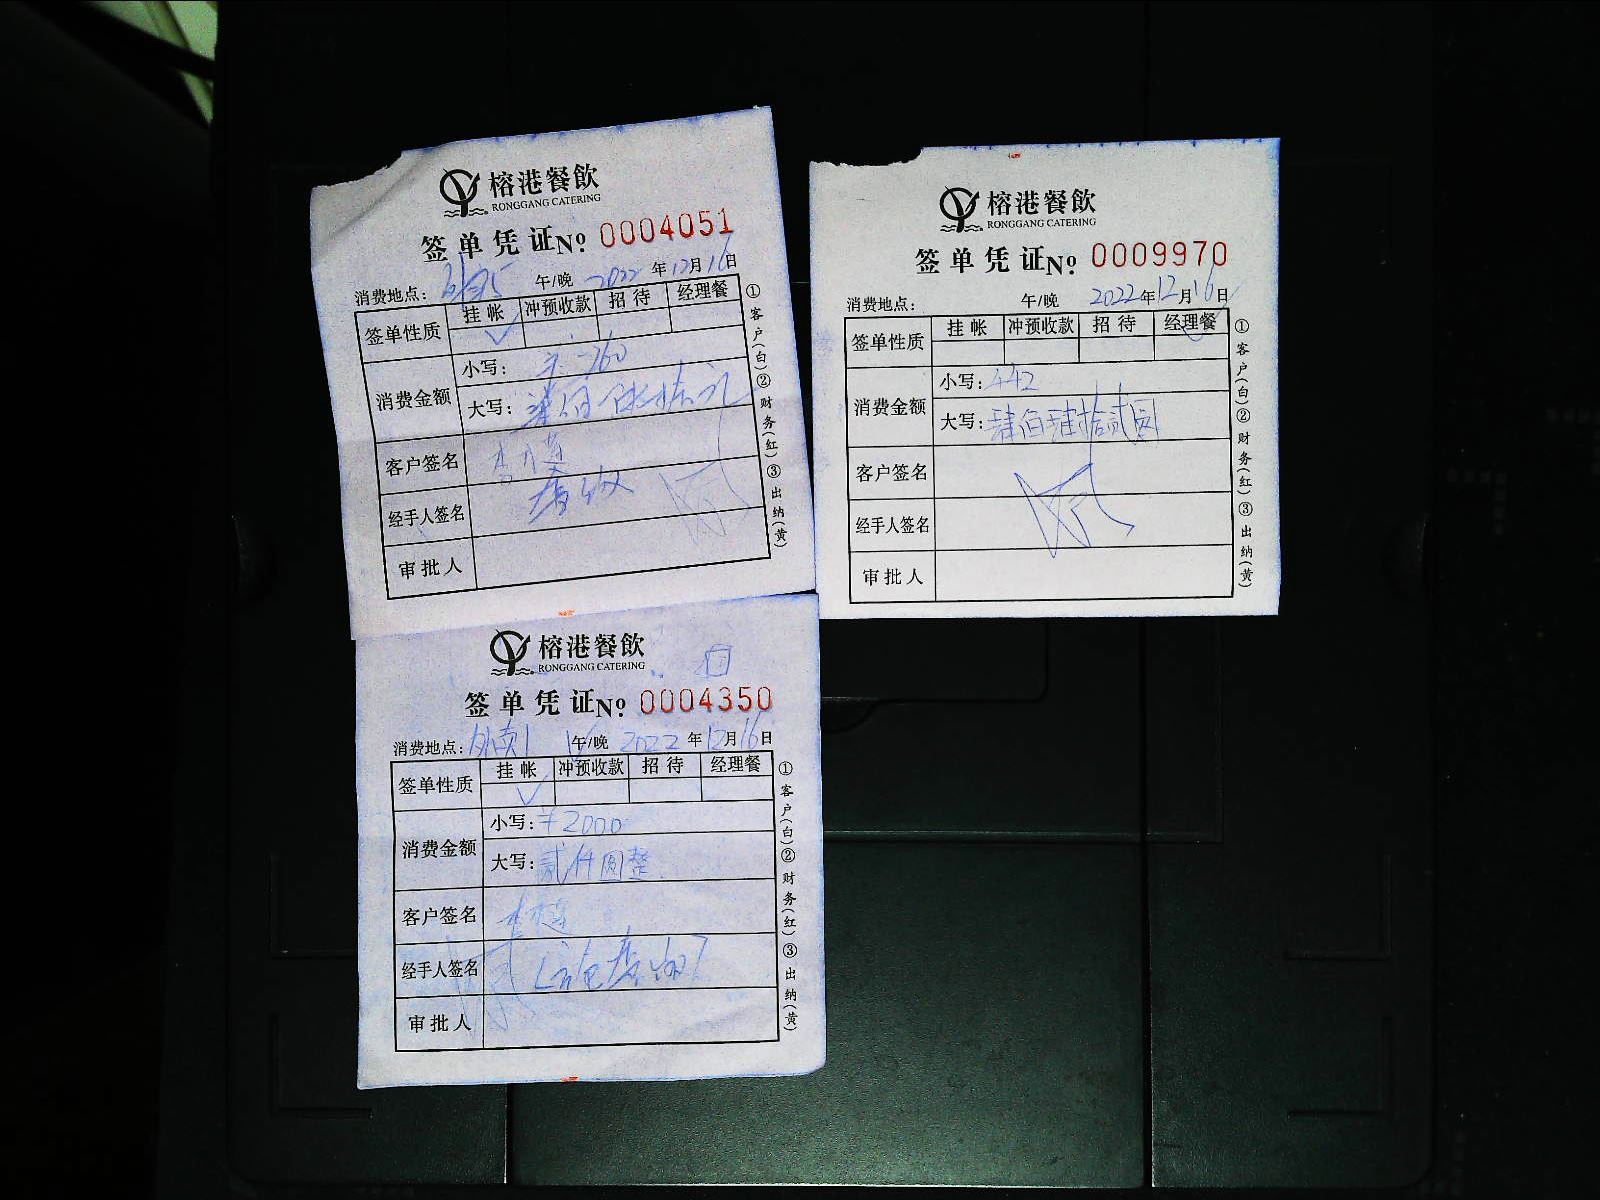 榕港餐飲
RONGGANG CATERING
签单凭证No 0004051
消费地点： 午/晚 2022年12月16日
签单性质 挂帐 冲预收款 招待 经理餐
消费金额 小写： 760
大写：
客户签名
经手人签名
审批人
①客户(白)②财务(红)③出纳(黄)
榕港餐飲
RONGGANG CATERING
签单凭证No 0009970
消费地点： 午/晚 2022年12月16日
签单性质 挂帐 冲预收款 招待 经理餐
消费金额 小写：442
大写：肆佰肆拾贰圆
客户签名
经手人签名
审批人
①客户(白)②财务(红)③出纳(黄)
榕港餐飲
RONGGANG CATERING
签单凭证No 0004350
消费地点：外卖1 午/晚 2022年12月16日
签单性质 挂帐 冲预收款 招待 经理餐
消费金额 小写：¥2000
大写：贰仟圆整
客户签名
经手人签名
审批人
①客户(白)②财务(红)③出纳(黄)